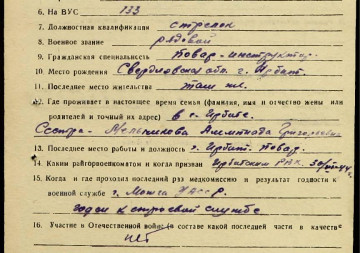 6. На ВУС 133
7. Должностная квалификация стрелок
8. Военное звание рядовой
9. Гражданская специальность Повар-инструктор
10. Место рождения Свердловская обл. г. Ирбит
11. Последнее место жительства там же.
12. Где проживает в настоящее время семья (фамилия, имя и отчество жены или
родителей и точный их адрес) в г. Ирбите.
Сестра - Мельникова
13. Последнее место работы и должность г. Ирбит. Повар.
14. Каким райгорвоенкоматом и когда призван Ирбитским РВК,
15. Когда и где проходил раз медкомиссию и результат годности к
военной службе г. Можга УАССР.
годен к строевой службе
16. Участие в Отечественной войне (в составе какой последней части в качестве
нет